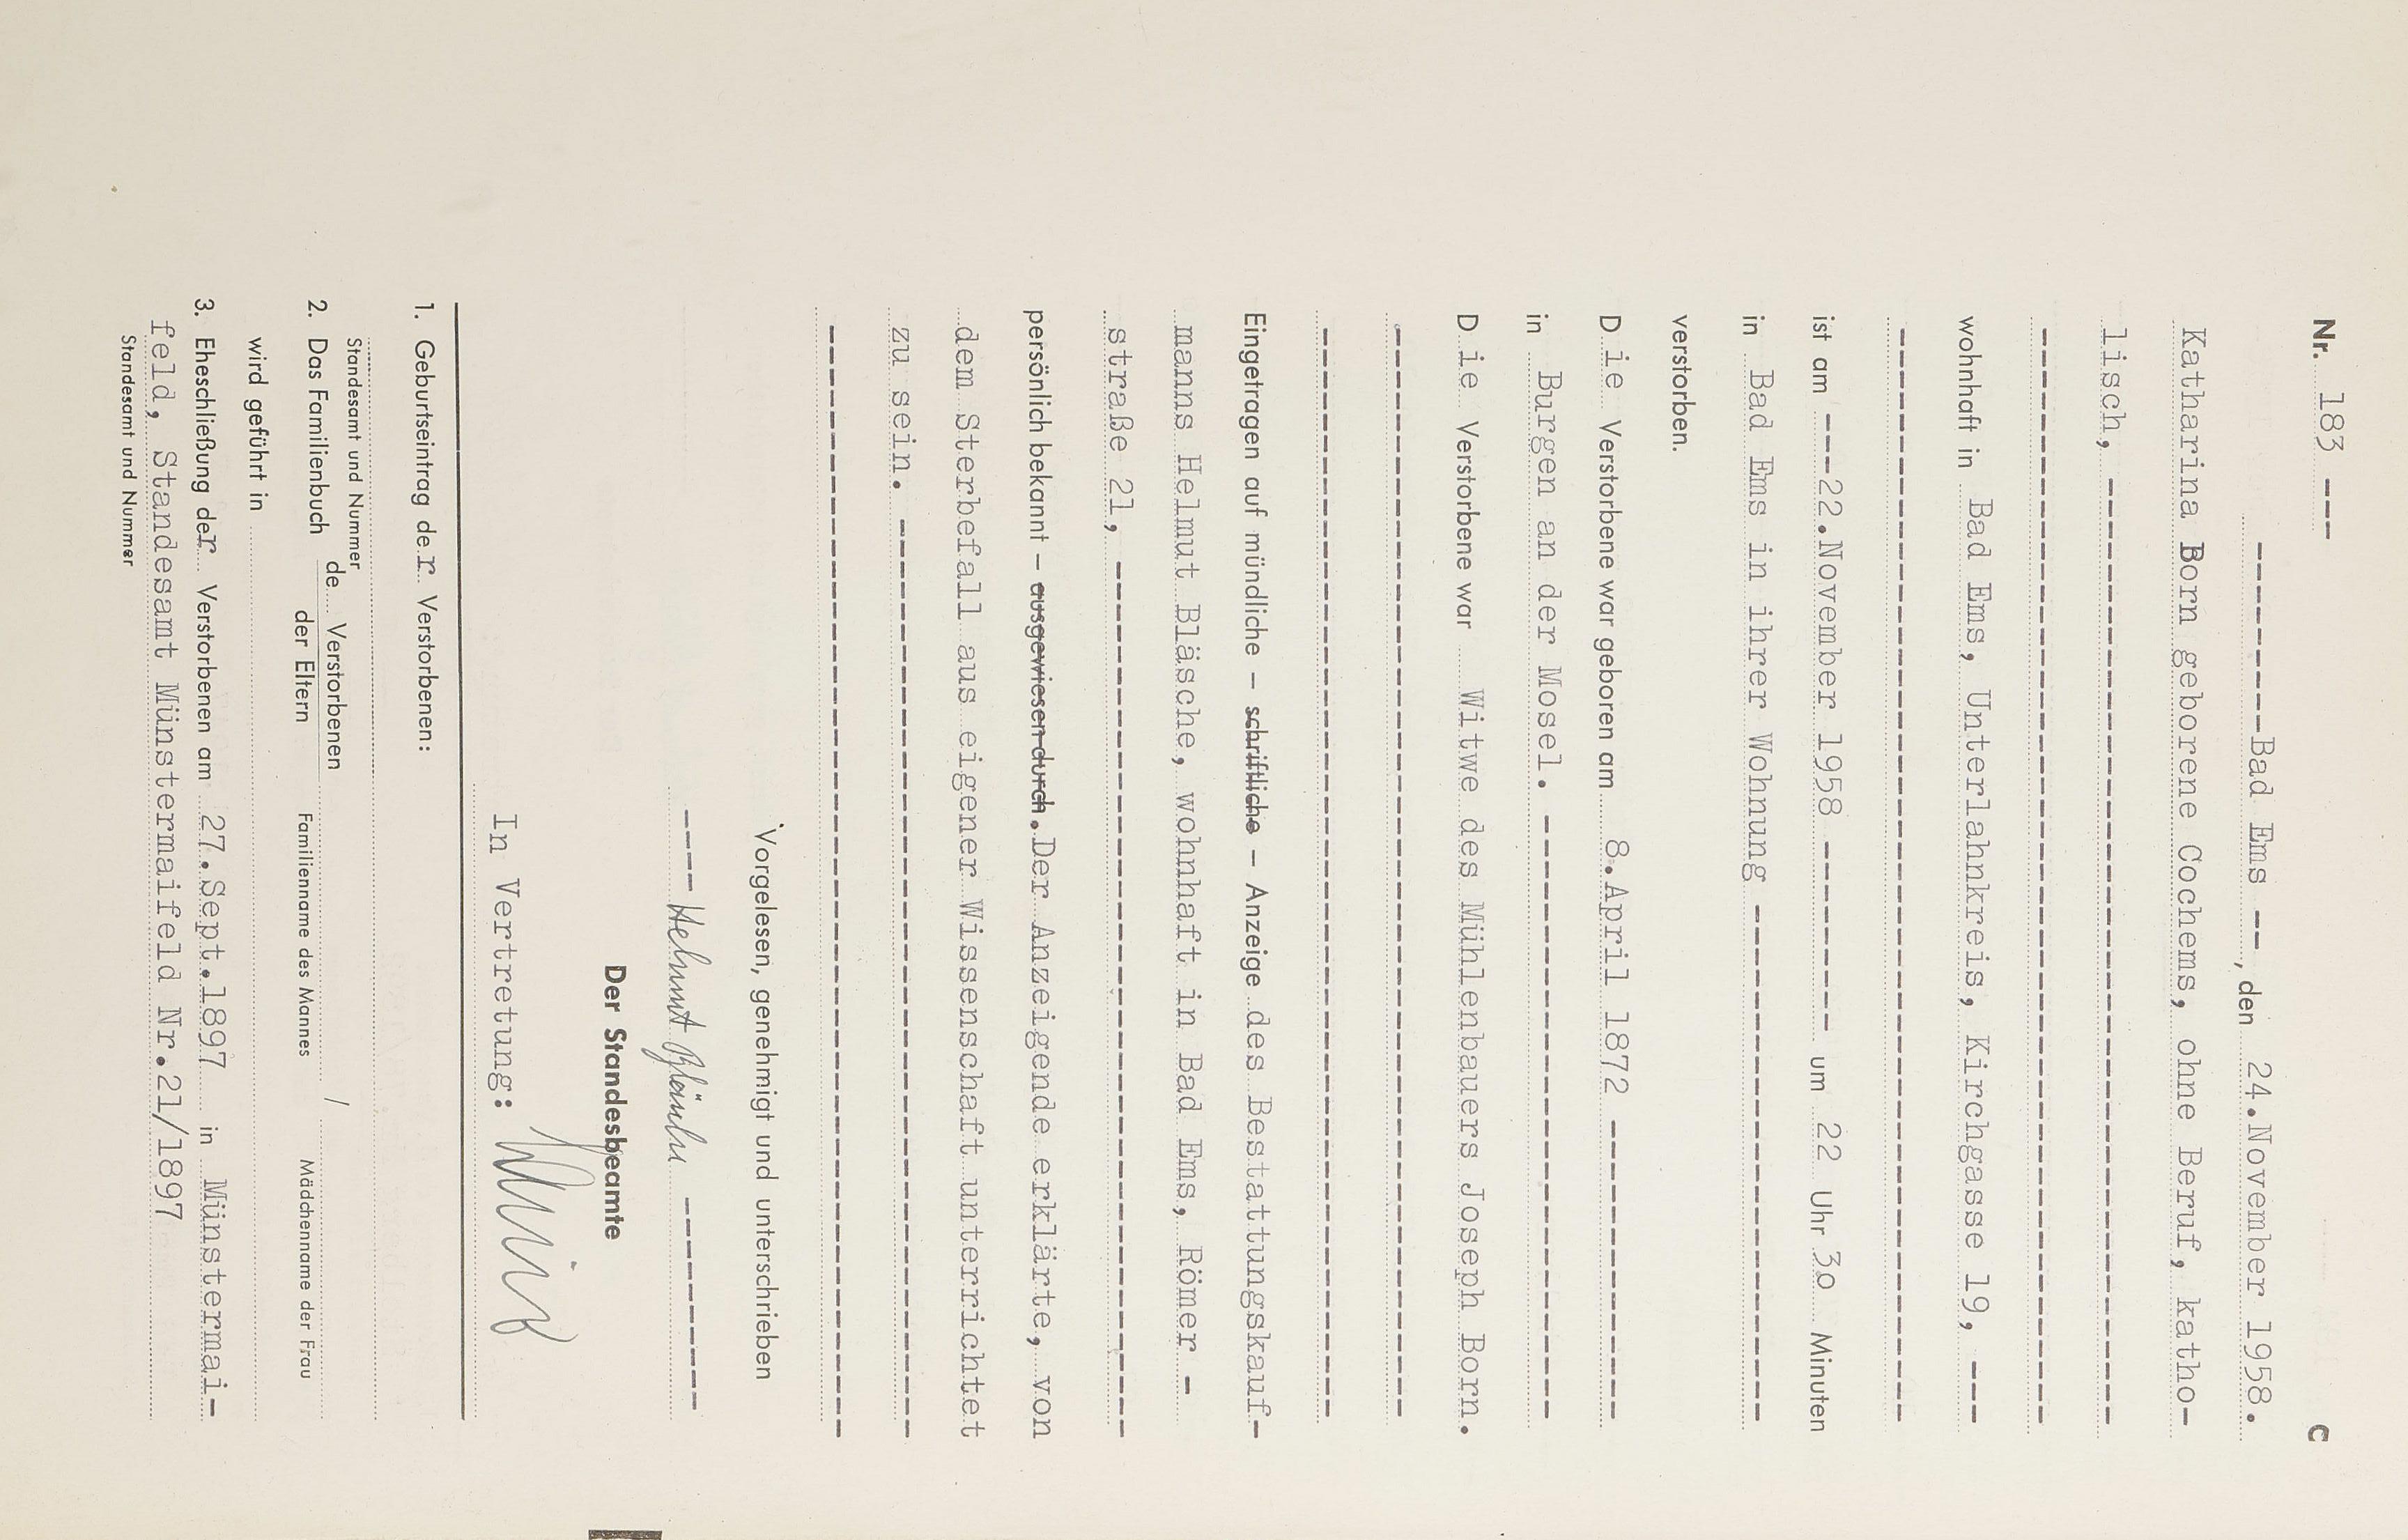 Nr. 183 --- C
--------Bad Ems --, den 24.November 1958.
Katharina Born geborene Cochems, ohne Beruf, katho-
lisch, ----------------------------------------
wohnhaft in Bad Ems, Unterlahnkreis, Kirchgasse 19, ---
ist am ---22.November 1958 -------- um 22 Uhr 30 Minuten
in Bad Ems in ihrer Wohnung ----------------------
verstorben.
Die Verstorbene war geboren am 8.April 1872 ------------
in Burgen an der Mosel. --------------------------
Die Verstorbene war Witwe des Mühlenbauers Joseph Born.
Eingetragen auf mündliche – schriftliche – Anzeige des Bestattungskauf-
manns Helmut Bläsche, wohnhaft in Bad Ems, Römer -
straße 21, ------------------------------------
persönlich bekannt – ausgewiesen durch. Der Anzeigende erklärte, von
dem Sterbefall aus eigener Wissenschaft unterrichtet
zu sein. ---------------------------------------
Vorgelesen, genehmigt und unterschrieben
---- Helmut Bläsche ---------
Der Standesbeamte
In Vertretung:
1. Geburtseintrag der Verstorbenen:
Standesamt und Nummer
2. Das Familienbuch de Verstorbenen / der Eltern
Familienname des Mannes Mädchenname der Frau
wird geführt in
3. Eheschließung der Verstorbenen am 27.Sept.1897 in Münstermai-
feld, Standesamt Münstermaifeld Nr.21/1897
Standesamt und Nummer